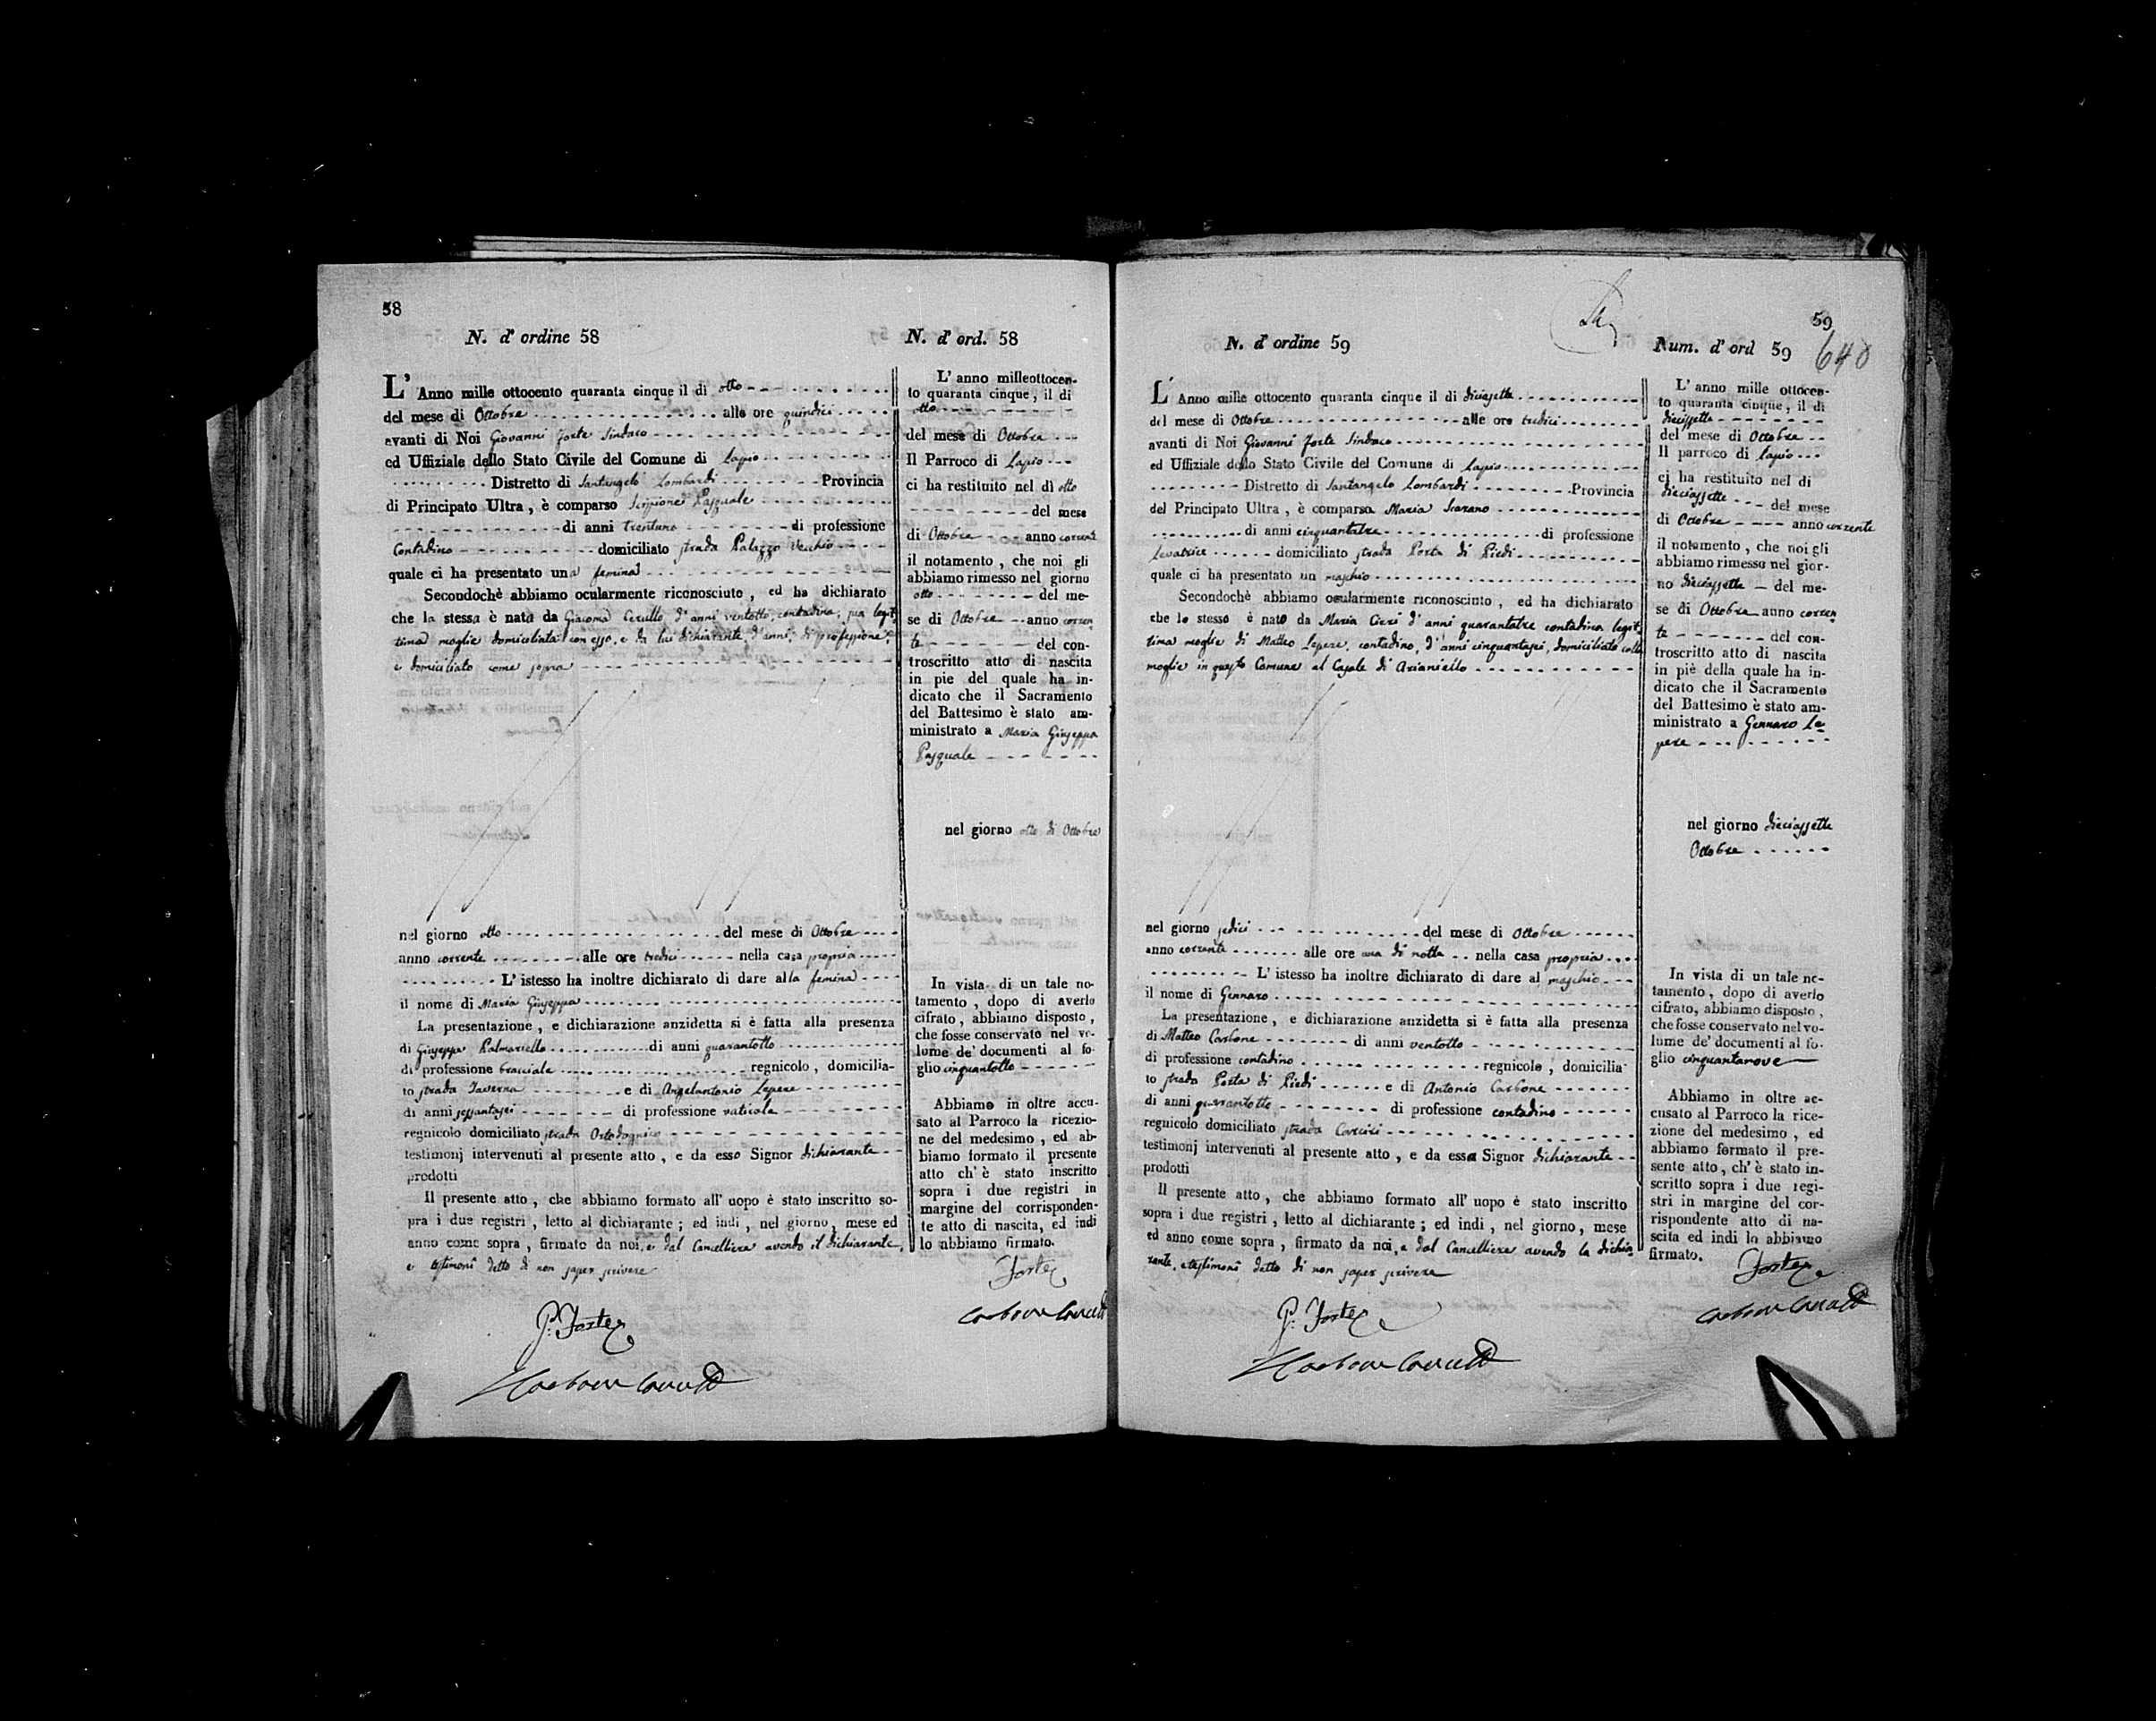 58
N. d' ordine 58
L' Anno mille ottocento quaranta cinque il di otto
del mese di Ottobre alle ore quindici
avanti di Noi Giovanni Forte Sindaco
ed Uffiziale dello Stato Civile del Comune di Lapio
Distretto di Santangelo Lombardi Provincia
di Principato Ultra, è comparso Scipione Pasquale
di anni trentuno di professione
Contadino domiciliato strada Palazzo Vecchio
quale ci ha presentato una femina
Secondochè abbiamo ocularmente riconosciuto, ed ha dichiarato
che la stessa è nata da Giacoma Cerullo, d'anni ventotto, contadina, sua legit-
tima moglie domiciliata con esso, e da lui dichiarante, d'anni, di professione,
e domiciliato come sopra
nel giorno otto del mese di Ottobre
anno corrente alle ore tredici nella casa propria
L' istesso ha inoltre dichiarato di dare alla femina
il nome di Maria Giuseppa
La presentazione, e dichiarazione anzidetta si è fatta alla presenza
di Giuseppe Palmariello di anni quarantotto
di professione bracciale regnicolo, domicilia-
to strada Taverna e di Angelantonio Lepere
di anni sessantasei di professione vaticale
regnicolo domiciliato strada
testimonj intervenuti al presente atto, e da esso Signor dichiarante
prodotti
Il presente atto, che abbiamo formato all' uopo è stato inscritto so-
pra i due registri, letto al dichiarante; ed indi, nel giorno, mese ed
anno come sopra, firmato da noi, e dal Cancelliere avendo il dichiarante,
e testimonî detto di non saper scrivere
G: Forte
N. d' ord. 58
L' anno milleottocen-
to quaranta cinque, il di
otto
del mese di Ottobre
Il Parroco di Lapio
ci ha restituito nel dì otto
del mese
di Ottobre anno corrente
il notamento, che noi gli
abbiamo rimesso nel giorno
otto del me-
se di Ottobre anno corren
te del con-
troscritto atto di nascita
in pie del quale ha in-
dicato che il Sacramento
del Battesimo è stato am-
ministrato a Maria Giuseppa
Pasquale
nel giorno otto di Ottobre
In vista di un tale no-
tamento, dopo di averlo
cifrato, abbiamo disposto,
che fosse conservato nel vo-
lume de' documenti al fo-
glio cinquantotto
Abbiamo in oltre accu-
sato al Parroco la ricezio-
ne del medesimo, ed ab-
biamo formato il presente
atto ch' è stato inscritto
sopra i due registri in
margine del corrisponden-
te atto di nascita, ed indi
lo abbiamo firmato.
Forte
59
640
N. d' ordine 59
L' Anno mille ottocento quaranta cinque il di diciasette
del mese di Ottobre alle ore tredici
avanti di Noi Giovanni Forte Sindaco
ed Uffiziale dello Stato Civile del Comune di Lapio
Distretto di Santangelo Lombardi Provincia
del Principato Ultra, è comparsa Maria Scarano
di anni cinquantatre di professione
Levatrice domiciliato strada Porta di Piedi
quale ci ha presentato un maschio
Secondochè abbiamo ocularmente riconosciuto, ed ha dichiarato
che lo stesso è nato da Maria Cieri d' anni quarantatre contadina legit-
tima moglie di Matteo Lepere, contadino, d' anni cinquantasei, domiciliato colla
moglie in questo Comune al Casale di Arianiello
nel giorno sedici del mese di Ottobre
anno corrente alle ore una di notte nella casa propria
L' istesso ha inoltre dichiarato di dare al maschio
il nome di Gennaro
La presentazione, e dichiarazione anzidetta si è fatta alla presenza
di Matteo Carbone di anni ventotto
di professione contadino regnicolo, domicilia-
to strada Porta di Piedi e di Antonio Carbone
di anni quarantotto di professione contadino
regnicolo domiciliato strada
testimonj intervenuti al presente atto, e da essa Signor dichiarante
prodotti
Il presente atto, che abbiamo formato all' uopo è stato inscritto
sopra i due registri, letto al dichiarante; ed indi, nel giorno, mese
ed anno come sopra, firmato da noi, e dal Cancelliere avendo la dichia-
rante, e testimonî detto di non saper scrivere
G: Forte
Num. d' ord 59
L' anno mille ottocen-
to quaranta cinque, il di
diciassette
del mese di Ottobre
Il parroco di Lapio
ci ha restituito nel di
dieciassette del mese
di Ottobre anno corrente
il notamento, che noi gli
abbiamo rimesso nel gior-
no dieciassette del me-
se di Ottobre anno corren
te del con-
troscritto atto di nascita
in piè della quale ha in-
dicato che il Sacramento
del Battesimo è stato am-
ministrato a Gennaro Le-
pere
nel giorno dieciassette
Ottobre
In vista di un tale no-
tamento, dopo di averlo
cifrato, abbiamo disposto,
che fosse conservato nel vo-
lume de' documenti al fo-
glio cinquantanove
Abbiamo in oltre ac-
cusato al Parroco la rice-
zione del medesimo, ed
abbiamo formato il pre-
sente atto, ch' è stato in-
scritto sopra i due regi-
stri in margine del cor-
rispondente atto di na-
scita ed indi lo abbiamo
firmato.
Forte